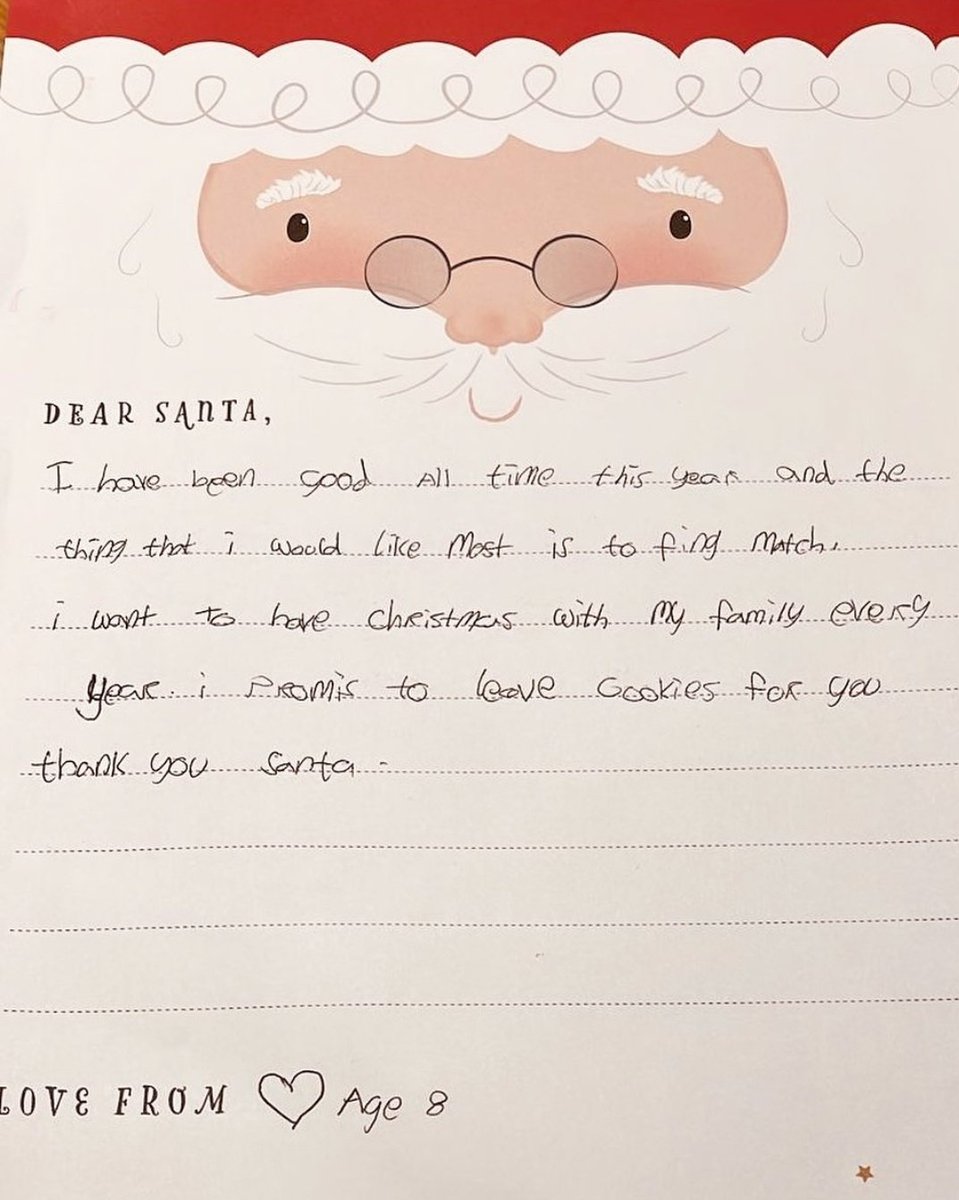 DEAR SANTA,
I have been good All time this year and the
thing that i would like Most is to fing Match.
i want to have christmas with My family every
year. i Promis to leave Cookies for you
thank you Santa -
LOVE FROM ♡ Age 8